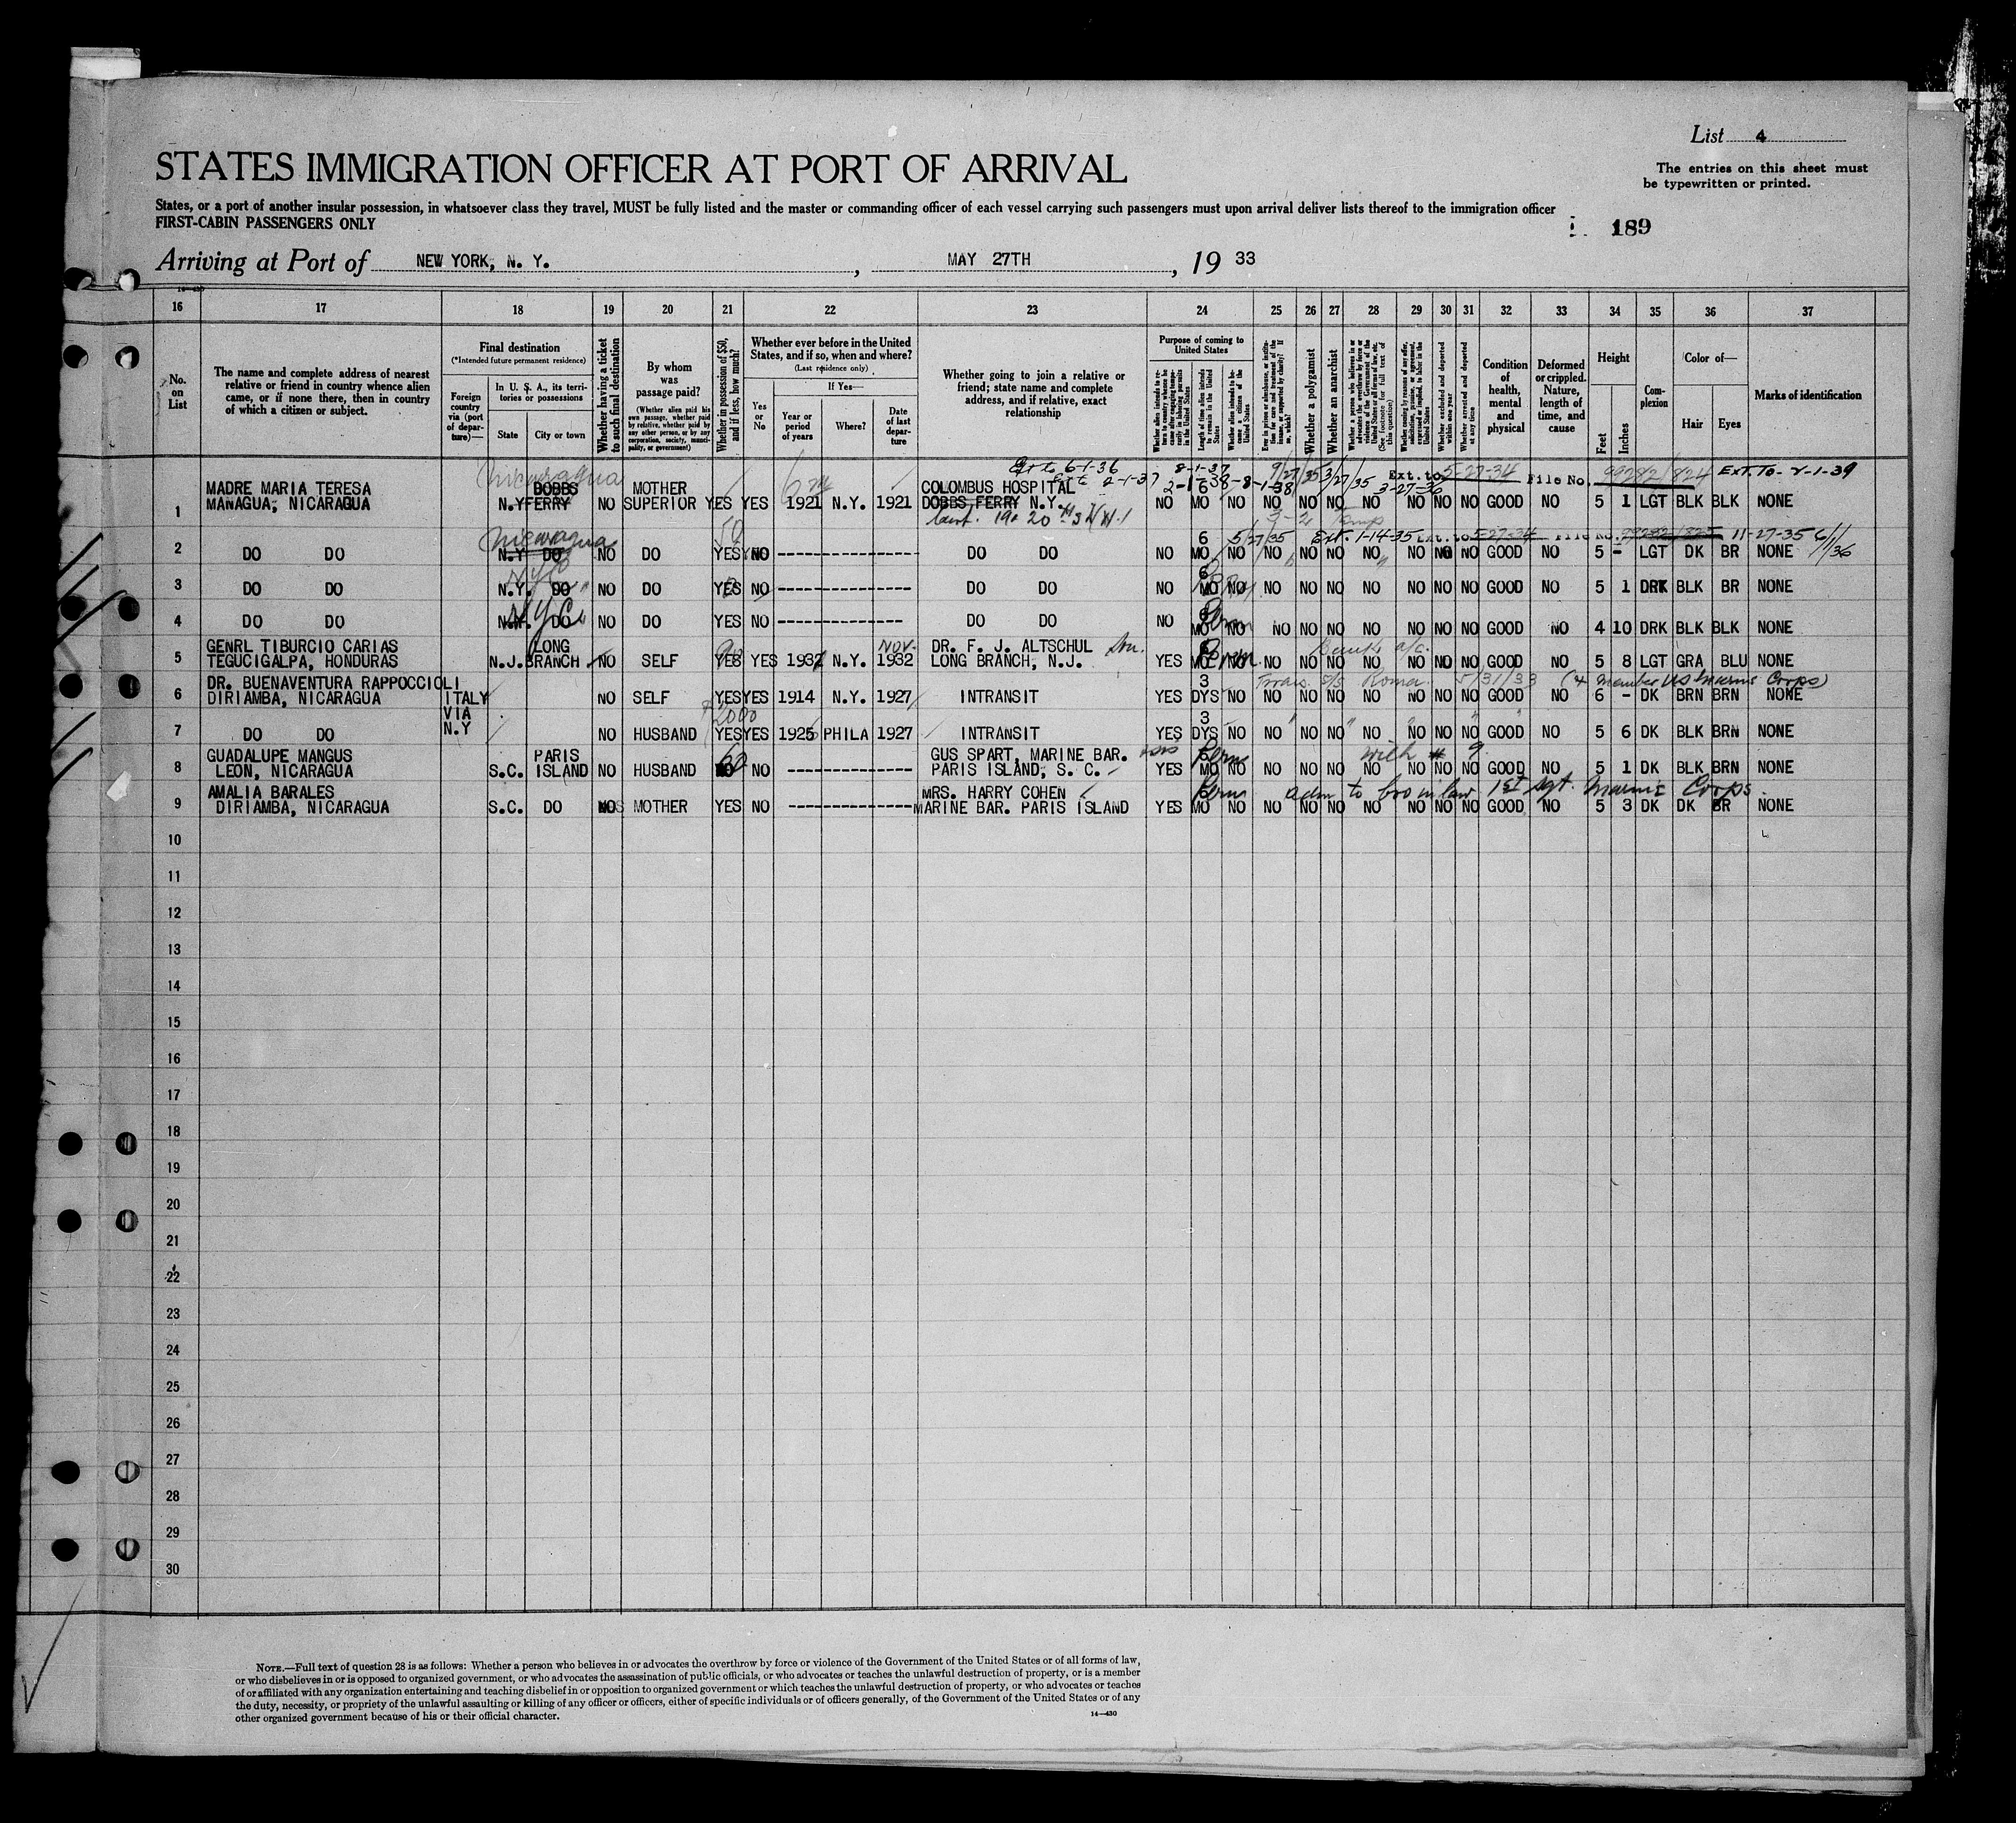 List 4
STATES IMMIGRATION OFFICER AT PORT OF ARRIVAL
The entries on this sheet must
be typewritten or printed.
States, or a port of another insular possession, in whatsoever class they travel, MUST be fully listed and the master or commanding officer of each vessel carrying such passengers must upon arrival deliver lists thereof to the immigration officer
FIRST-CABIN PASSENGERS ONLY
189
Arriving at Port of NEW YORK, N. Y. , MAY 27TH , 19 33
16 17 18 19 20 21 22 23 24 25 26 27 28 29 30 31 32 33 34 35 36 37
No. on List
The name and complete address of nearest relative or friend in country whence alien came, or if none there, then in country of which a citizen or subject.
Final destination
(*Intended future permanent residence)
Foreign country via (port of departure)—
In U. S. A., its territories or possessions
State
City or town
Whether having a ticket to such final destination
By whom was passage paid?
(Whether alien paid his own passage, whether paid by relative, whether paid by any other person, or by any corporation, society, municipality, or government)
Whether in possession of $50, and if less, how much?
Whether ever before in the United States, and if so, when and where?
(Last residence only)
Yes or No
If Yes—
Year or period of years
Where?
Date of last departure
Whether going to join a relative or friend; state name and complete address, and if relative, exact relationship
Purpose of coming to United States
Length of time alien intends to remain in the United States
Whether alien intends to become a citizen of the United States
Whether a polygamist
Whether an anarchist
(See footnote for full text of this question)
Whether excluded and deported within one year
Whether arrested and deported at any time
Condition of health, mental and physical
Deformed or crippled. Nature, length of time, and cause
Height
Feet
Inches
Complexion
Color of—
Hair
Eyes
Marks of identification
Nicaragua Ext to 6-1-36 8-1-37 Ext. to 5-27-34 File No. 99282/824 EXT. TO- 2-1-39
MADRE MARIA TERESA DOBBS MOTHER COLOMBUS HOSPITAL 6
1 MANAGUA, NICARAGUA N.Y FERRY NO SUPERIOR YES YES 1921 N.Y. 1921 DOBBS FERRY N.Y. NO MO NO NO NO NO NO NO NO NO GOOD NO 5 1 LGT BLK BLK NONE
Nicaragua 50 6 5/27/35 Ext. 1-14-35 Ext. to 5-27-34 File No. 11-27-35 6/1/36
2 DO DO N.Y DO NO DO YES NO DO DO NO MO NO NO NO NO NO NO NO NO GOOD NO 5 - LGT DK BR NONE
6
3 DO DO N.Y. DO NO DO YES NO DO DO NO MO NO NO NO NO NO NO NO NO GOOD NO 5 1 DRK BLK BR NONE
NYC Perm
4 DO DO N.Y. DO NO DO YES NO DO DO NO MO NO NO NO NO NO NO NO NO GOOD NO 4 10 DRK BLK BLK NONE
GENRL TIBURCIO CARIAS LONG NOV. DR. F. J. ALTSCHUL
5 TEGUCIGALPA, HONDURAS N.J. BRANCH NO SELF YES YES 1932 N.Y. 1932 LONG BRANCH, N.J. YES MO NO NO NO NO NO NO NO NO GOOD NO 5 8 LGT GRA BLU NONE
DR. BUENAVENTURA RAPPOCCIOLI 3 Trans. S/S Roma 5/31/33 Member US Marine Corps)
6 DIRIAMBA, NICARAGUA ITALY NO SELF YES YES 1914 N.Y. 1927 INTRANSIT YES DYS NO NO NO NO NO NO NO NO GOOD NO 6 - DK BRN BRN NONE
VIA 2000 3
7 DO DO N.Y NO HUSBAND YES YES 1925 PHILA 1927 INTRANSIT YES DYS NO NO NO NO NO NO NO NO GOOD NO 5 6 DK BLK BRN NONE
GUADALUPE MANGUS PARIS GUS SPART, MARINE BAR. Perm with # 9
8 LEON, NICARAGUA S.C. ISLAND NO HUSBAND NO PARIS ISLAND, S. C. YES MO NO NO NO NO NO NO NO NO GOOD NO 5 1 DK BLK BRN NONE
AMALIA BARALES MRS. HARRY COHEN Perm adm to bro in law 1st Sgt. Marine Corps
9 DIRIAMBA, NICARAGUA S.C. DO MOTHER YES NO MARINE BAR. PARIS ISLAND YES MO NO NO NO NO NO NO NO NO GOOD NO 5 3 DK DK BR NONE
10
11
12
13
14
15
16
17
18
19
20
21
22
23
24
25
26
27
28
29
30
NOTE.—Full text of question 28 is as follows: Whether a person who believes in or advocates the overthrow by force or violence of the Government of the United States or of all forms of law,
or who disbelieves in or is opposed to organized government, or who advocates the assassination of public officials, or who advocates or teaches the unlawful destruction of property, or is a member
of or affiliated with any organization entertaining and teaching disbelief in or opposition to organized government or which teaches the unlawful destruction of property, or who advocates or teaches
the duty, necessity, or propriety of the unlawful assaulting or killing of any officer or officers, either of specific individuals or of officers generally, of the Government of the United States or of any
other organized government because of his or their official character.
14—430